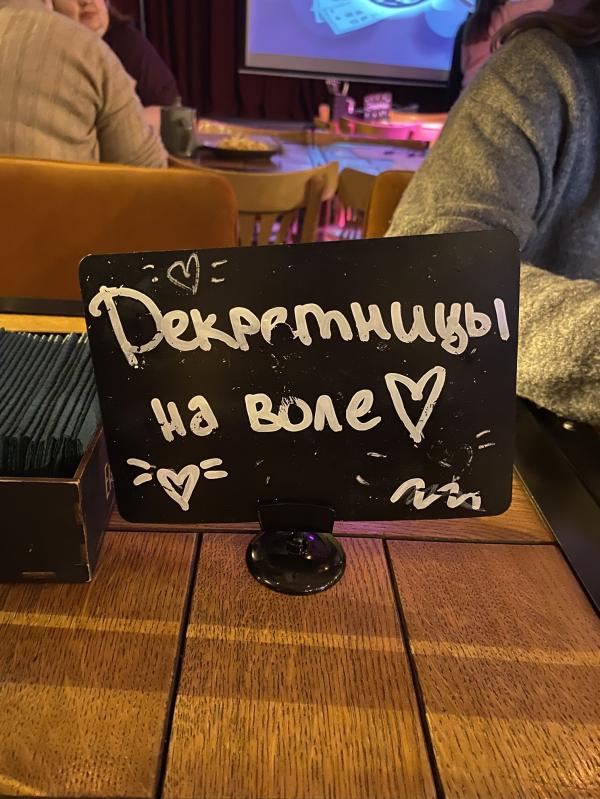 Декретницы
на воле